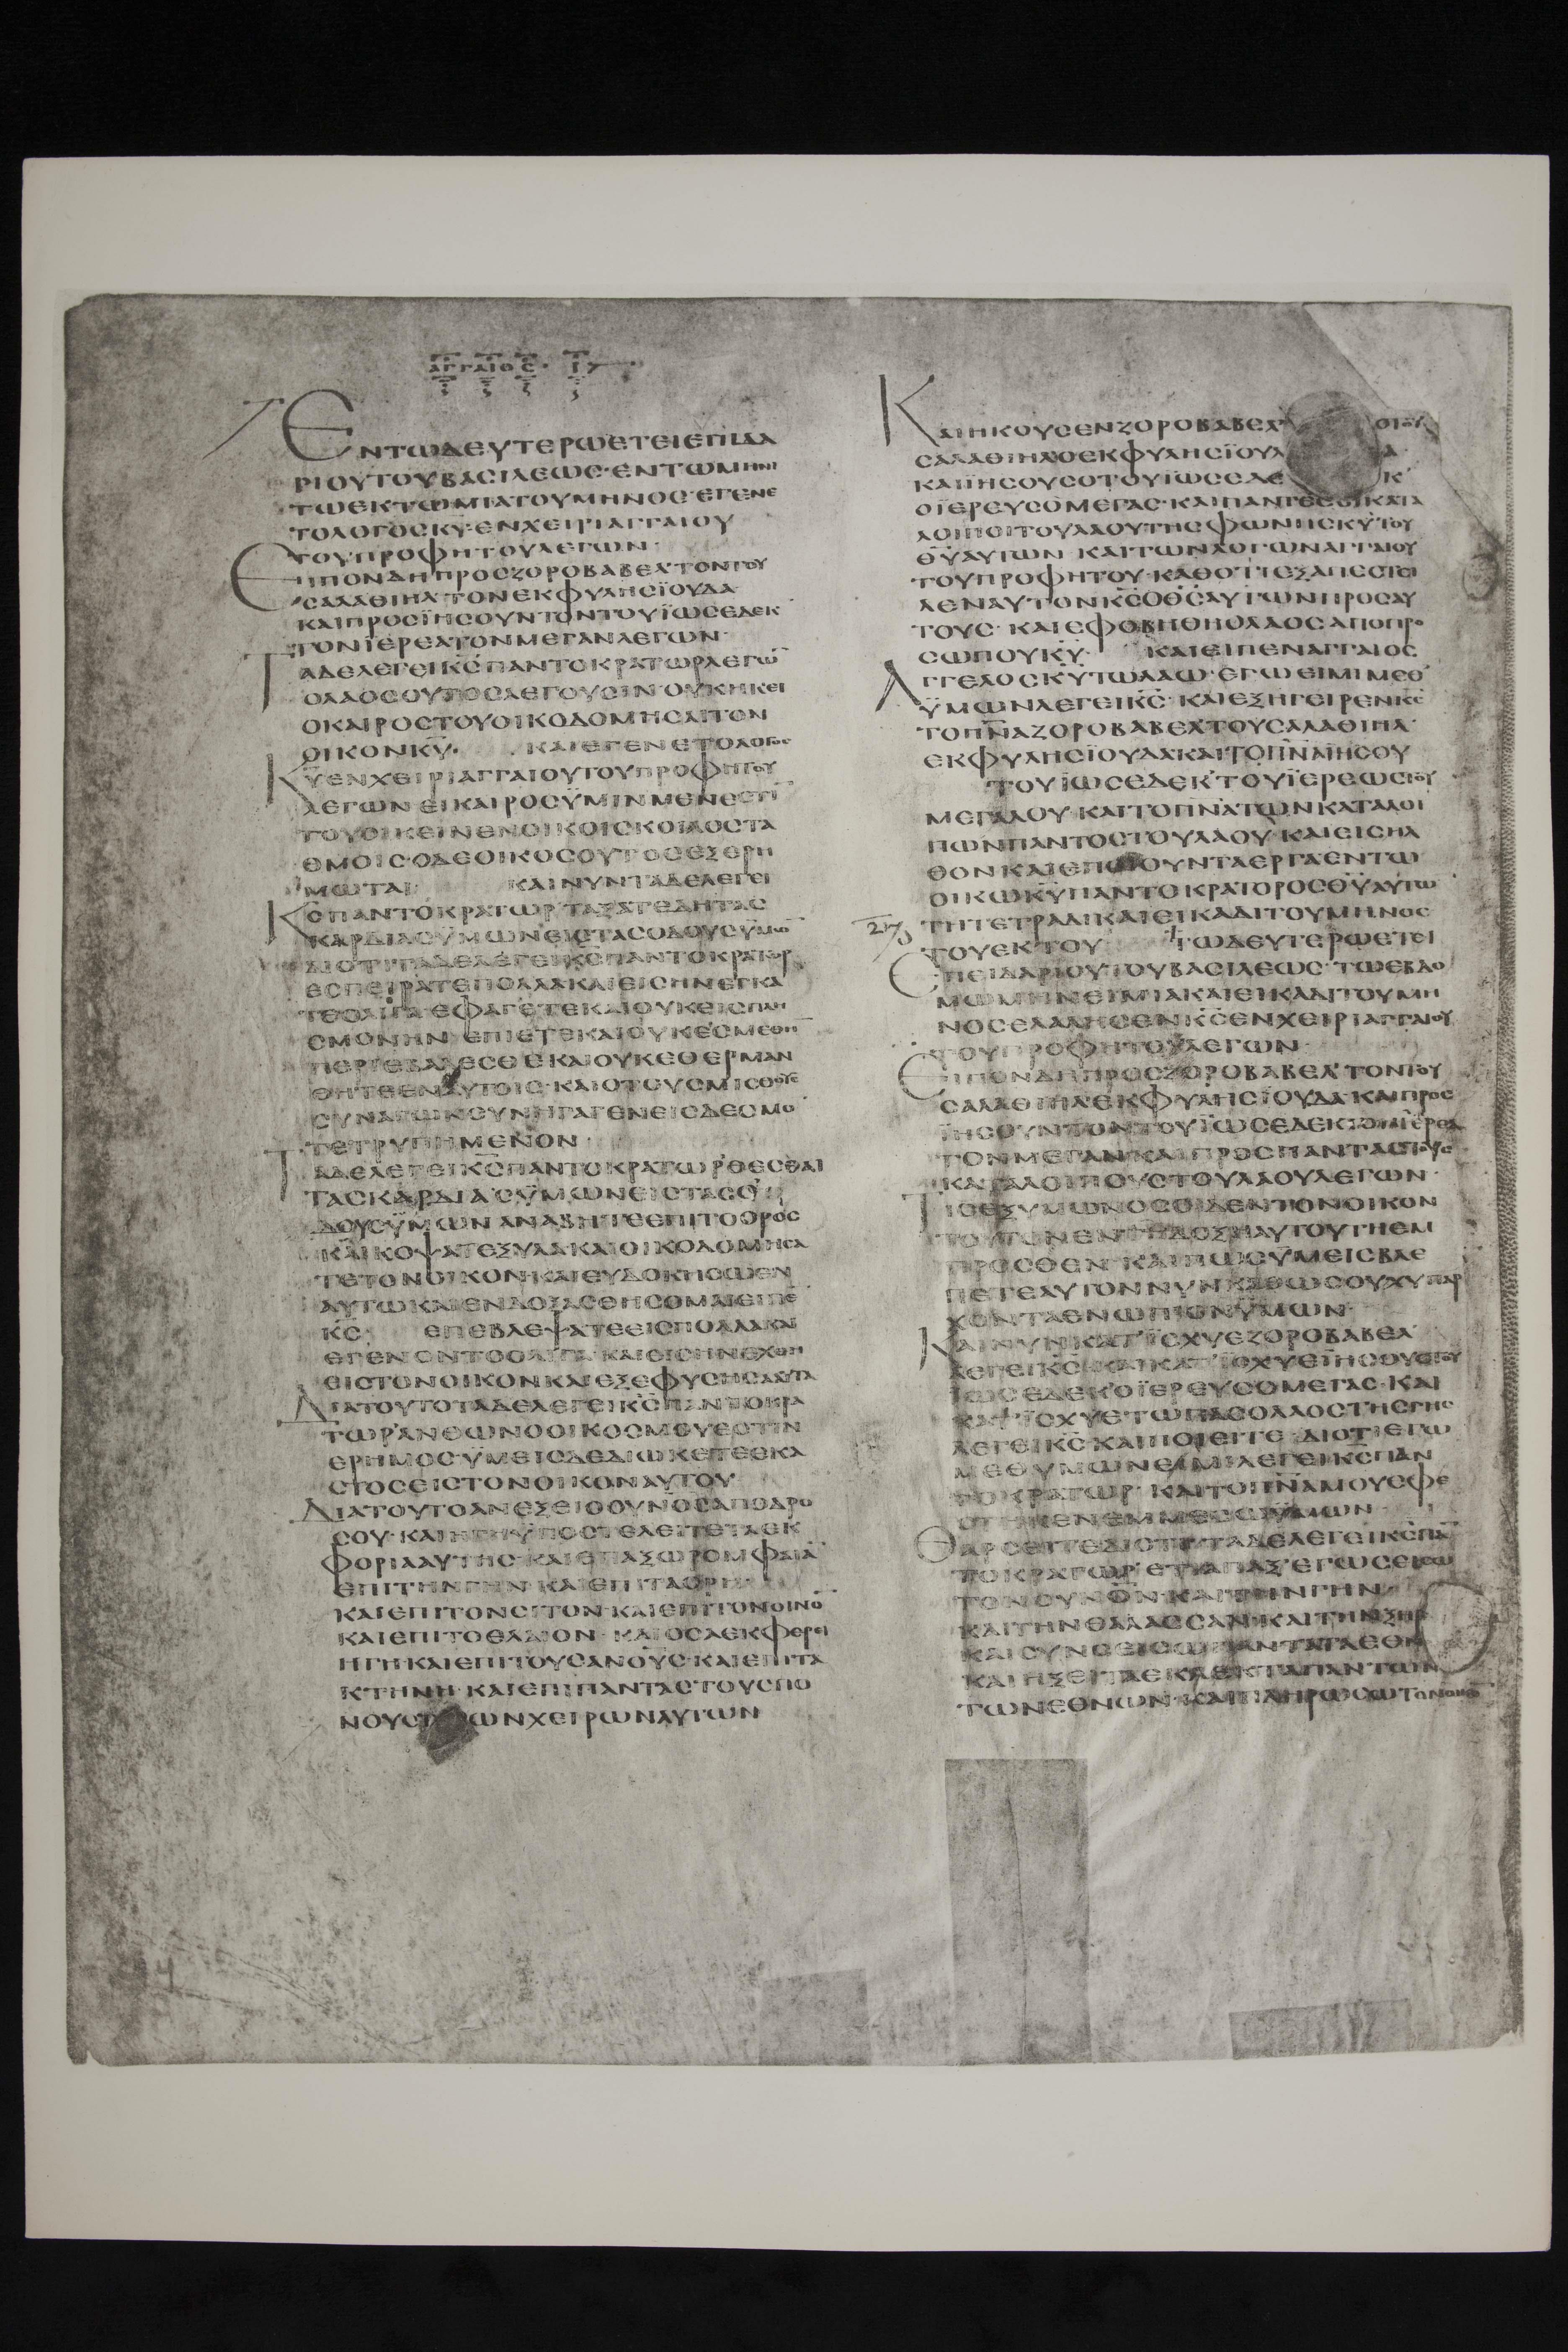 ΑΓΓΑΙΟΣ · ΙΓ
ΕΝΤΩΔΕΥΤΕΡΩΕΤΕΙΕΠΙΔΑ
ΡΙΟΥΤΟΥΒΑCΙΛΕΩC·ΕΝΤΩΜΗΝΙ
ΤΩΕΚΤΩΜΙΑΤΟΥΜΗΝΟC·ΕΓΕΝΕ
ΤΟΛΟΓΟCΚΥ·ΕΝΧΕΙΡΙΑΓΓΑΙΟΥ
ΤΟΥΠΡΟΦΗΤΟΥΛΕΓΩΝ·
ΕΙΠΟΝΔΗΠΡΟCΖΟΡΟΒΑΒΕΛ·ΤΟΝΤΟΥ
CΑΛΑΘΙΗΛ·ΤΟΝΕΚΦΥΛΗCΪΟΥΔΑ·
ΚΑΙΠΡΟCΪΗCΟΥΝΤΟΝΤΟΥΪΩCΕΔΕΚ
ΤΟΝΪΕΡΕΑΤΟΝΜΕΓΑΝΛΕΓΩΝ·
ΤΑΔΕΛΕΓΕΙΚCΠΑΝΤΟΚΡΑΤΩΡΛΕΓΩ̄
ΟΛΑΟCΟΥΤΟCΛΕΓΟΥCΙΝ·ΟΥΚΗΚΕΙ
ΟΚΑΙΡΟCΤΟΥΟΙΚΟΔΟΜΗCΑΙΤΟΝ
ΟΙΚΟΝΚΥ· ΚΑΙΕΓΕΝΕΤΟΛΟΓΟC
ΚΥΕΝΧΕΙΡΙΑΓΓΑΙΟΥΤΟΥΠΡΟΦΗΤΟΥ
ΛΕΓΩΝΕΙΚΑΙΡΟCΫΜΙΝΜΕΝΕCΤΙ
ΤΟΥΟΙΚΕΙΝΕΝΟΙΚΟΙCΚΟΙΛΟCΤΑ
ΘΜΟΙC·ΟΔΕΟΙΚΟCΟΥΤΟCΕΞΕΡΗ
ΜΩΤΑΙ ΚΑΙΝΥΝΤΑΔΕΛΕΓΕΙ
ΚCΠΑΝΤΟΚΡΑΤΩΡ·ΤΑΞΑΤΕΔΗΤΑC
ΚΑΡΔΙΑCΫΜΩΝΕΙCΤΑCΟΔΟΥCΫΜΩ̄
ΔΙΟΤΙΤΑΔΕΛΕΓΕΙΚCΠΑΝΤΟΚΡΑΤΩΡ
ΕCΠΕΙΡΑΤΕΠΟΛΛΑΚΑΙΕΙCΗΝΕΓΚΑ
ΤΕΟΛΙΓΑ·ΕΦΑΓΕΤΕΚΑΙΟΥΚΕΙCΠΛΗ
CΜΟΝΗΝ ΕΠΙΕΤΕΚΑΙΟΥΚΕΙCΜΕΘΗ̄
ΠΕΡΙΕΒΑΛΕCΘΕΚΑΙΟΥΚΕΘΕΡΜΑΝ
ΘΗΤΕΕΝΑΥΤΟΙC·ΚΑΙΟΤΟΥCΜΙCΘΟΥC
CΥΝΑΓΩΝCΥΝΗΓΑΓΕΝΕΙCΔΕCΜΟ̄
ΤΕΤΡΥΠΗΜΕΝΟΝ·
ΤΑΔΕΛΕΓΕΙΚCΠΑΝΤΟΚΡΑΤΩΡ·ΘΕCΘΑΙ
ΤΑCΚΑΡΔΙΑCΫΜΩΝΕΙCΤΑCΟ
ΔΟΥCΫΜΩΝΑΝΑΒΗΤΕΕΠΙΤΟΟΡΟC
ΚΑΙΚΟΨΑΤΕΞΥΛΑΚΑΙΟΙΚΟΔΟΜΗCΑ
ΤΕΤΟΝΟΙΚΟΝΚΑΙΕΥΔΟΚΗCΩΕΝ
ΑΥΤΩΚΑΙΕΝΔΟΞΑCΘΗCΟΜΑΙΕΙΠΕ̄
ΚC· ΕΠΕΒΛΕΨΑΤΕΕΙCΠΟΛΛΑΚΑΙ
ΕΓΕΝΟΝΤΟΟΛΙΓΑ·ΚΑΙΕΙCΗΝΕΧΘΗ
ΕΙCΤΟΝΟΙΚΟΝΚΑΙΕΞΕΦΥCΗCΑΑΥΤΑ
ΔΙΑΤΟΥΤΟΤΑΔΕΛΕΓΕΙΚCΠΑΝΤΟΚΡΑ
ΤΩΡ·ΑΝΘΩΝΟΟΙΚΟCΜΟΥΕCΤΙΝ
ΕΡΗΜΟCΫΜΕΙCΔΕΔΙΩΚΕΤΕΕΚΑ
CΤΟCΕΙCΤΟΝΟΙΚΟΝΑΥΤΟΥ·
ΔΙΑΤΟΥΤΟΑΝΕΞΕΙΟΟΥΝΟCΑΠΟΔΡΟ
CΟΥ·ΚΑΙΗΓΗΫΠΟCΤΕΛΕΙΤΕΤΑΕΚ
ΦΟΡΙΑΑΥΤΗC·ΚΑΙΕΠΑΞΩΡΟΜΦΑΙᾹ
ΕΠΙΤΗΝΓΗΝ·ΚΑΙΕΠΙΤΑΟΡΗ·
ΚΑΙΕΠΙΤΟΝCΙΤΟΝ·ΚΑΙΕΠΙΤΟΝΟΙΝΟ̄
ΚΑΙΕΠΙΤΟΕΛΑΙΟΝ·ΚΑΙΟCΑΕΚΦΕΡΕΙ
ΗΓΗ·ΚΑΙΕΠΙΤΟΥCΑΝΟΥC·ΚΑΙΕΠΙΤΑ
ΚΤΗΝΗ·ΚΑΙΕΠΙΠΑΝΤΑCΤΟΥCΠΟ
ΝΟΥC ΩΝΧΕΙΡΩΝΑΥΤΩΝ
ΚΑΙΗΚΟΥCΕΝΖΟΡΟΒΑΒΕΛ ΟΤΟΥ
CΑΛΑΘΙΗΛΟΕΚΦΥΛΗCΪΟΥΔΑ·
ΚΑΙΪΗCΟΥCΟΤΟΥΪΩCΕΔΕΚ
ΟΪΕΡΕΥCΟΜΕΓΑC·ΚΑΙΠΑΝΤΕCΟΙΚΑΤΑ
ΛΟΙΠΟΙΤΟΥΛΑΟΥΤΗCΦΩΝΗCΚΥΤΟΥ
ΘΥΑΥΤΩΝ ΚΑΙΤΩΝΛΟΓΩΝΑΓΓΑΙΟΥ
ΤΟΥΠΡΟΦΗΤΟΥ·ΚΑΘΟΤΙΕΞΑΠΕCΤΕΙ
ΛΕΝΑΥΤΟΝΚCΟΘCΑΥΤΩΝΠΡΟCΑΥ
ΤΟΥC· ΚΑΙΕΦΟΒΗΘΗΟΛΑΟCΑΠΟΠΡΟ
CΩΠΟΥΚΥ· ΚΑΙΕΙΠΕΝΑΓΓΑΙΟC
ΑΓΓΕΛΟCΚΥΤΩΛΑΩ·ΕΓΩΕΙΜΙΜΕΘ
ΫΜΩΝΛΕΓΕΙΚC· ΚΑΙΕΞΗΓΕΙΡΕΝΚC
ΤΟΠΝΑΖΟΡΟΒΑΒΕΛΤΟΥCΑΛΑΘΙΗΛ·
ΕΚΦΥΛΗCΪΟΥΔΑΚΑΙΤΟΠΝΑΪΗCΟΥ
ΤΟΥΪΩCΕΔΕΚ·ΤΟΥΪΕΡΕΩCΤΟΥ
ΜΕΓΑΛΟΥ·ΚΑΙΤΟΠΝΑΤΩΝΚΑΤΑΛΟΙ
ΠΩΝΠΑΝΤΟCΤΟΥΛΑΟΥ·ΚΑΙΕΙCΗΛ
ΘΟΝΚΑΙΕΠΟΙΟΥΝΤΑΕΡΓΑΕΝΤΩ
ΟΙΚΩΚΥΠΑΝΤΟΚΡΑΤΟΡΟCΘΥΑΥΤΩ̄
ΤΗΤΕΤΡΑΔΙΚΑΙΕΙΚΑΔΙΤΟΥΜΗΝΟC
ΤΟΥΕΚΤΟΥ ΤΩΔΕΥΤΕΡΩΕΤΕΙ
ΕΠΕΙΔΑΡΙΟΥΤΟΥΒΑCΙΛΕΩC·ΤΩΕΒΔΟ
ΜΩΜΗΝΕΙΜΙΑΚΑΙΕΙΚΑΔΙΤΟΥΜΗ
ΝΟCΕΛΑΛΗCΕΝΚCΕΝΧΕΙΡΙΑΓΓΑΙΟΥ
ΤΟΥΠΡΟΦΗΤΟΥΛΕΓΩΝ·
ΕΙΠΟΝΔΗΠΡΟCΖΟΡΟΒΑΒΕΛ·ΤΟΝΤΟΥ
CΑΛΑΘΙΗΛΕΚΦΥΛΗCΪΟΥΔΑ·ΚΑΙΠΡΟC
ΪΗCΟΥΝΤΟΝΤΟΥΪΩCΕΔΕΚΤΟΝΪΕΡΕΑ
ΤΟΝΜΕΓΑΝ·ΚΑΙΠΡΟCΠΑΝΤΑCΤΟΥC
ΚΑΤΑΛΟΙΠΟΥCΤΟΥΛΑΟΥΛΕΓΩΝ·
ΤΙCΕΞΥΜΩΝΟCΟΙΔΕΝΤΟΝΟΙΚΟΝ
ΤΟΥΤΟΝΕΝΤΗΔΟΞΗΑΥΤΟΥΤΗΕΜ
ΠΡΟCΘΕΝ·ΚΑΙΠΩCΫΜΕΙCΒΛΕ
ΠΕΤΕΑΥΤΟΝΝΥΝΚΑΘΩCΟΥΧΥΠΑΡ
ΧΟΝΤΑΕΝΩΠΙΟΝΫΜΩΝ·
ΚΑΙΝΥΝΚΑΤΪCΧΥΕΖΟΡΟΒΑΒΕΛ·
ΛΕΓΕΙΚC·ΚΑΙΚΑΤΪCΧΥΕΪΗCΟΥCΟΤΟΥ
ΪΩCΕΔΕΚ·ΟΪΕΡΕΥCΟΜΕΓΑC·ΚΑΙ
ΚΑΤΪCΧΥΕΤΩΠΑCΟΛΑΟCΤΗCΓΗC
ΛΕΓΕΙΚC·ΚΑΙΠΟΙΕΙΤΕ·ΔΙΟΤΙΕΓΩ
ΜΕΘΥΜΩΝΕΙΜΙΛΕΓΕΙΚCΠΑΝ
ΤΟΚΡΑΤΩΡ·ΚΑΙΤΟΠΝΑΜΟΥΕΦΕ
CΤΗΚΕΝΕΜΜΕCΩΫΜΩΝ·
ΘΑΡCΕΙΤΕΔΙΟΤΙΤΑΔΕΛΕΓΕΙΚCΠᾹ
ΤΟΚΡΑΤΩΡ·ΕΤΙΑΠΑΞΕΓΩCΕΙCΩ
ΤΟΝΟΥΝΟΝ·ΚΑΙΤΗΝΓΗΝ
ΚΑΙΤΗΝΘΑΛΑCCΑΝ·ΚΑΙΤΗΝΞΗΡ
ΚΑΙCΥΝCΕΙCΩΠΑΝΤΑΤΑΕΘΝ
ΚΑΙΗΞΕΙΤΑΕΚΛΕΚΤΑΠΑΝΤΩΝ
ΤΩΝΕΘΝΩΝ·ΚΑΙΠΛΗΡΩCΩΤΟΝΟΙΚΟ̄